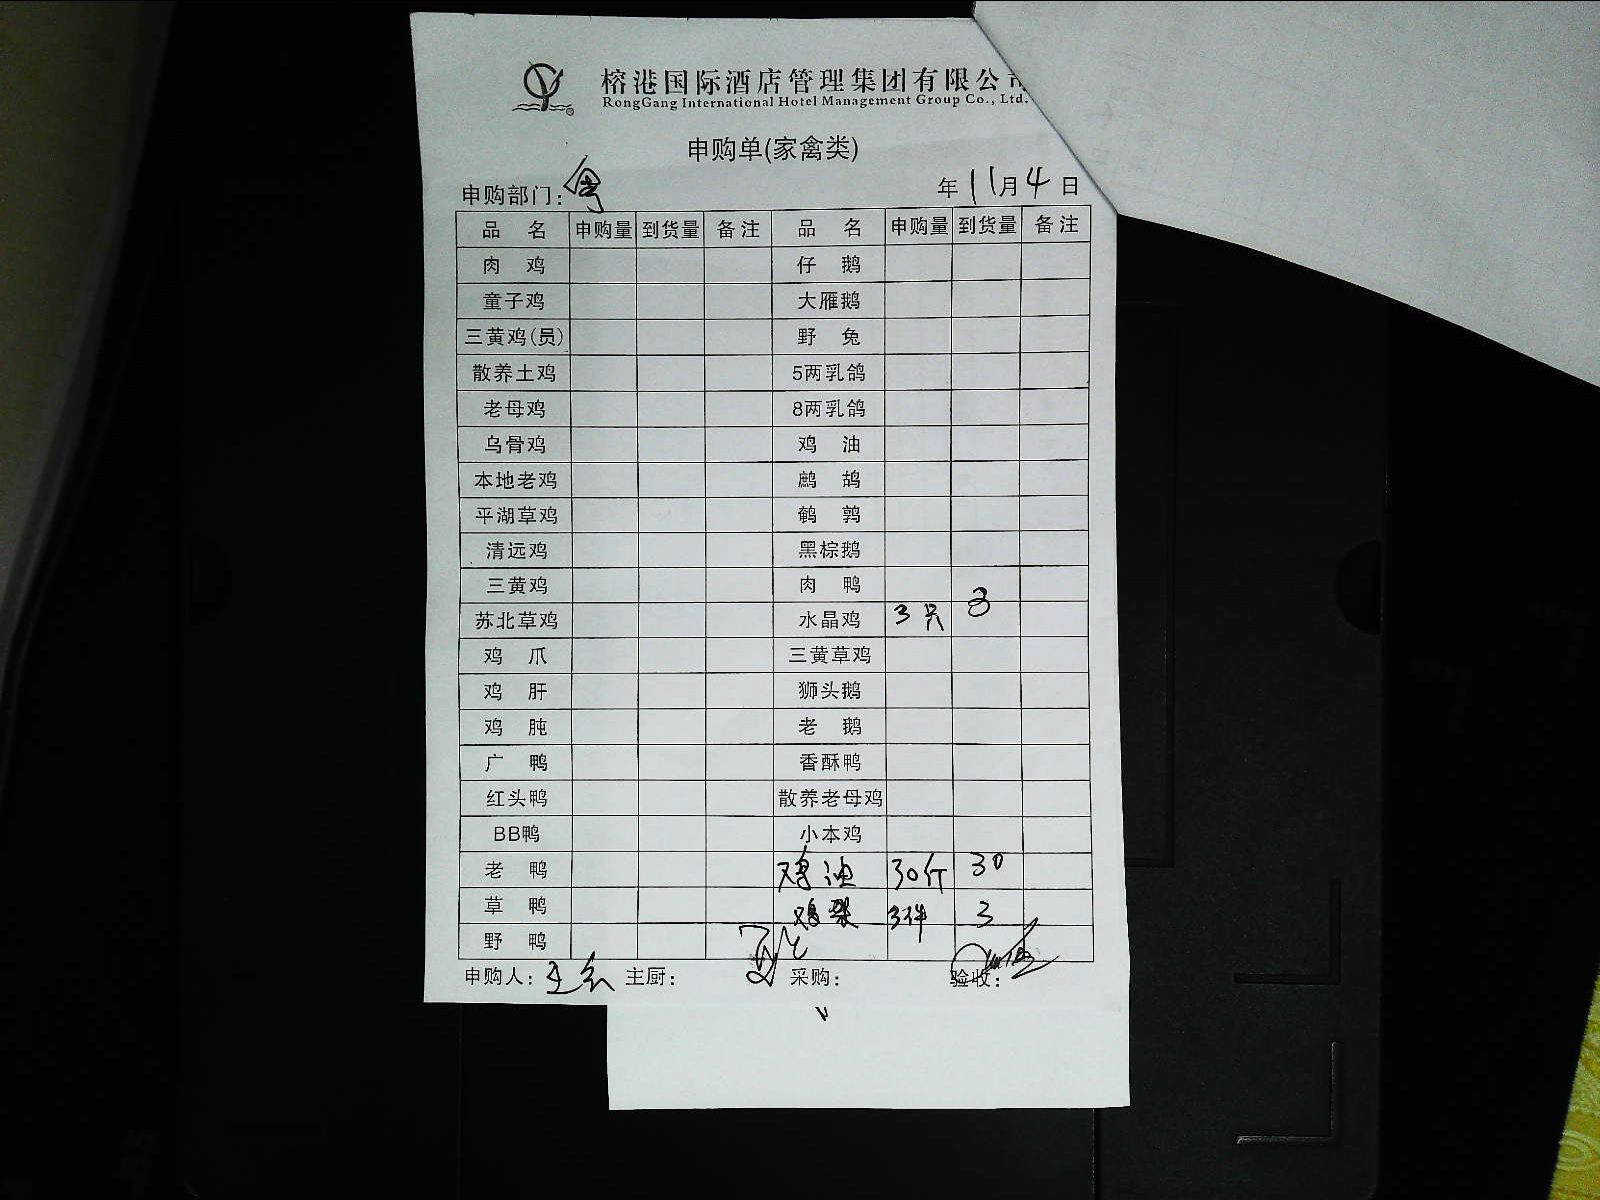 榕港国际酒店管理集团有限公司
RongGang International Hotel Management Group Co., Ltd.
申购单(家禽类)
申购部门: 年 11月 4 日
品 名 申购量 到货量 备注 品 名 申购量 到货量 备注
肉 鸡 仔 鹅
童子鸡 大雁鹅
三黄鸡(员) 野 兔
散养土鸡 5两乳鸽
老母鸡 8两乳鸽
乌骨鸡 鸡 油
本地老鸡 鹧 鸪
平湖草鸡 鹌 鹑
清远鸡 黑棕鹅
三黄鸡 肉 鸭
苏北草鸡 水晶鸡 3只 3
鸡 爪 三黄草鸡
鸡 肝 狮头鹅
鸡 肫 老 鹅
广 鸭 香酥鸭
红头鸭 散养老母鸡
BB鸭 小本鸡
老 鸭 鸡油 30斤 30
草 鸭 鸡架 3件 3
野 鸭
申购人: 主厨: 采购: 验收: